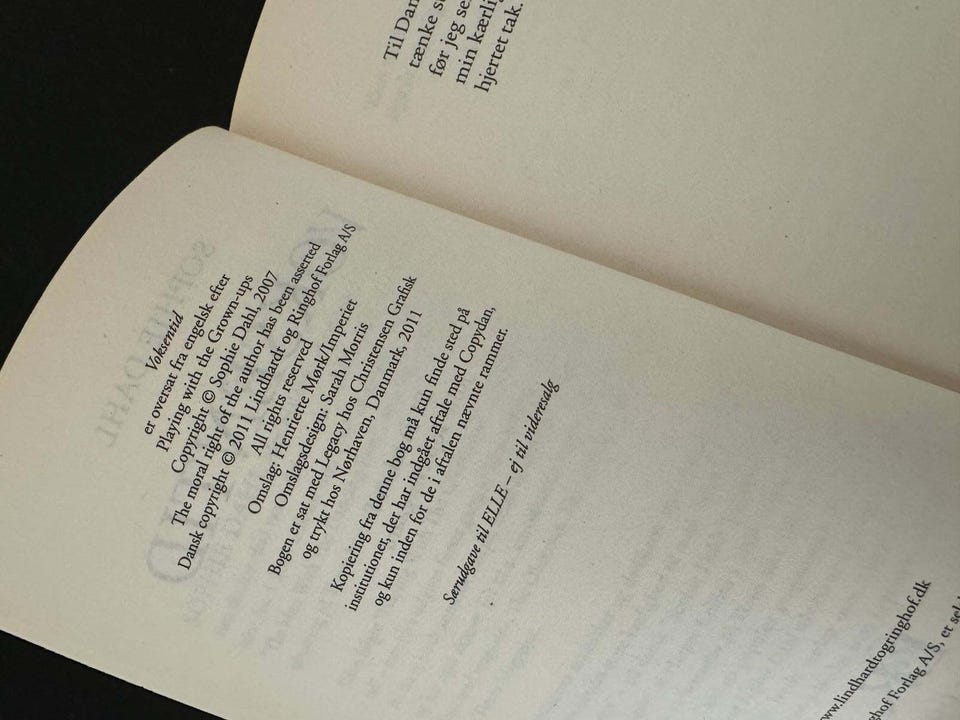 Til Dan
tænke s
før jeg se
min kærli
hjertet tak.
Voksentid
er oversat fra engelsk efter
Playing with the Grown-ups
Copyright © Sophie Dahl, 2007
The moral right of the author has been asserted
Dansk copyright © 2011 Lindhardt og Ringhof Forlag A/S
All rights reserved
Omslag: Henriette Mørk/Imperiet
Omslagsdesign: Sarah Morris
Bogen er sat med Legacy hos Christensen Grafisk
og trykt hos Nørhaven, Danmark, 2011
Kopiering fra denne bog må kun finde sted på
institutioner, der har indgået aftale med Copydan,
og kun inden for de i aftalen nævnte rammer.
Særudgave til ELLE – ej til videresalg
www.lindhardtogringhof.dk
hof Forlag A/S, et sel